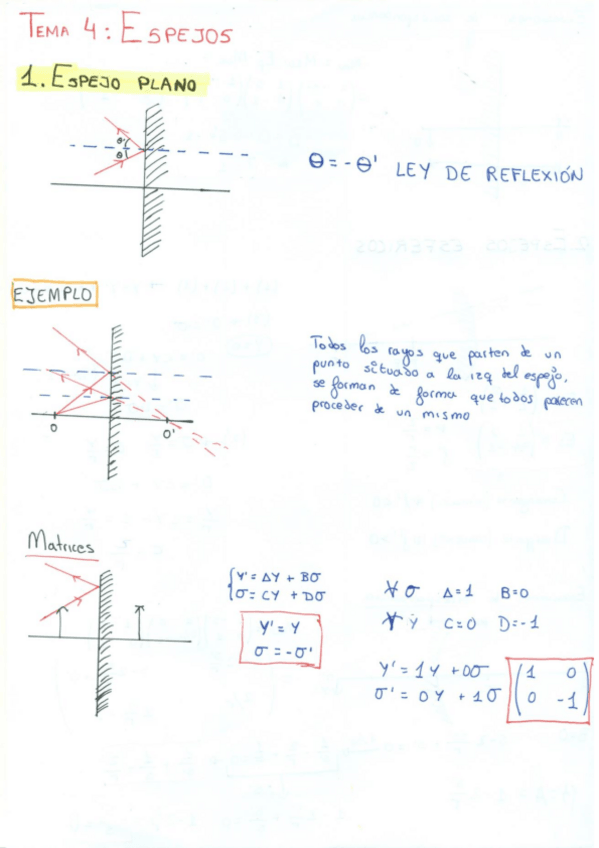 TEMA 4: ESPEJOS
1. ESPEJO PLANO
θ'
θ
θ = - θ' LEY DE REFLEXIÓN
EJEMPLO
Todos los rayos que parten de un
punto situado a la izq del espejo,
se forman de forma que todos parecen
proceder de un mismo
O O'
Matrices
Y' = AY + Bσ
σ = CY + Dσ
Y' = Y
σ = -σ'
∀ σ A=1 B=0
∀ Y C=0 D=-1
Y' = 1Y + 0σ
σ' = 0Y + 1σ
1 0
0 -1